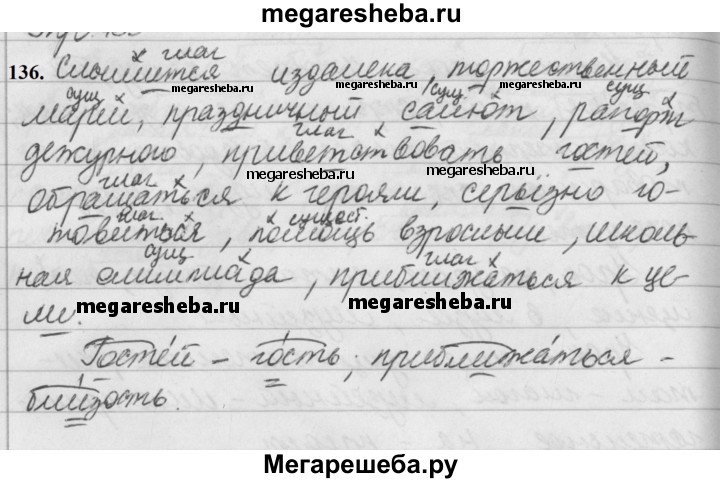 megaresheba.ru
глаг
136. Слышится издалека, торжественный
megaresheba.ru megaresheba.ru megaresheba.ru
сущ сущ сущ
марш, праздничный салют, рапорт
megaresheba.ru глаг megaresheba.ru
дежурного, приветствовать гостей,
megaresheba.ru megaresheba.ru
глаг
обращаться к героям, серьёзно го-
глаг сущест.
товиться, помощь взрослым, школь-
сущ глаг
ная олимпиада, приближаться к це-
megaresheba.ru megaresheba.ru
ли.
Гостей – гость; приближаться –
близость.
Мегарешеба.ру